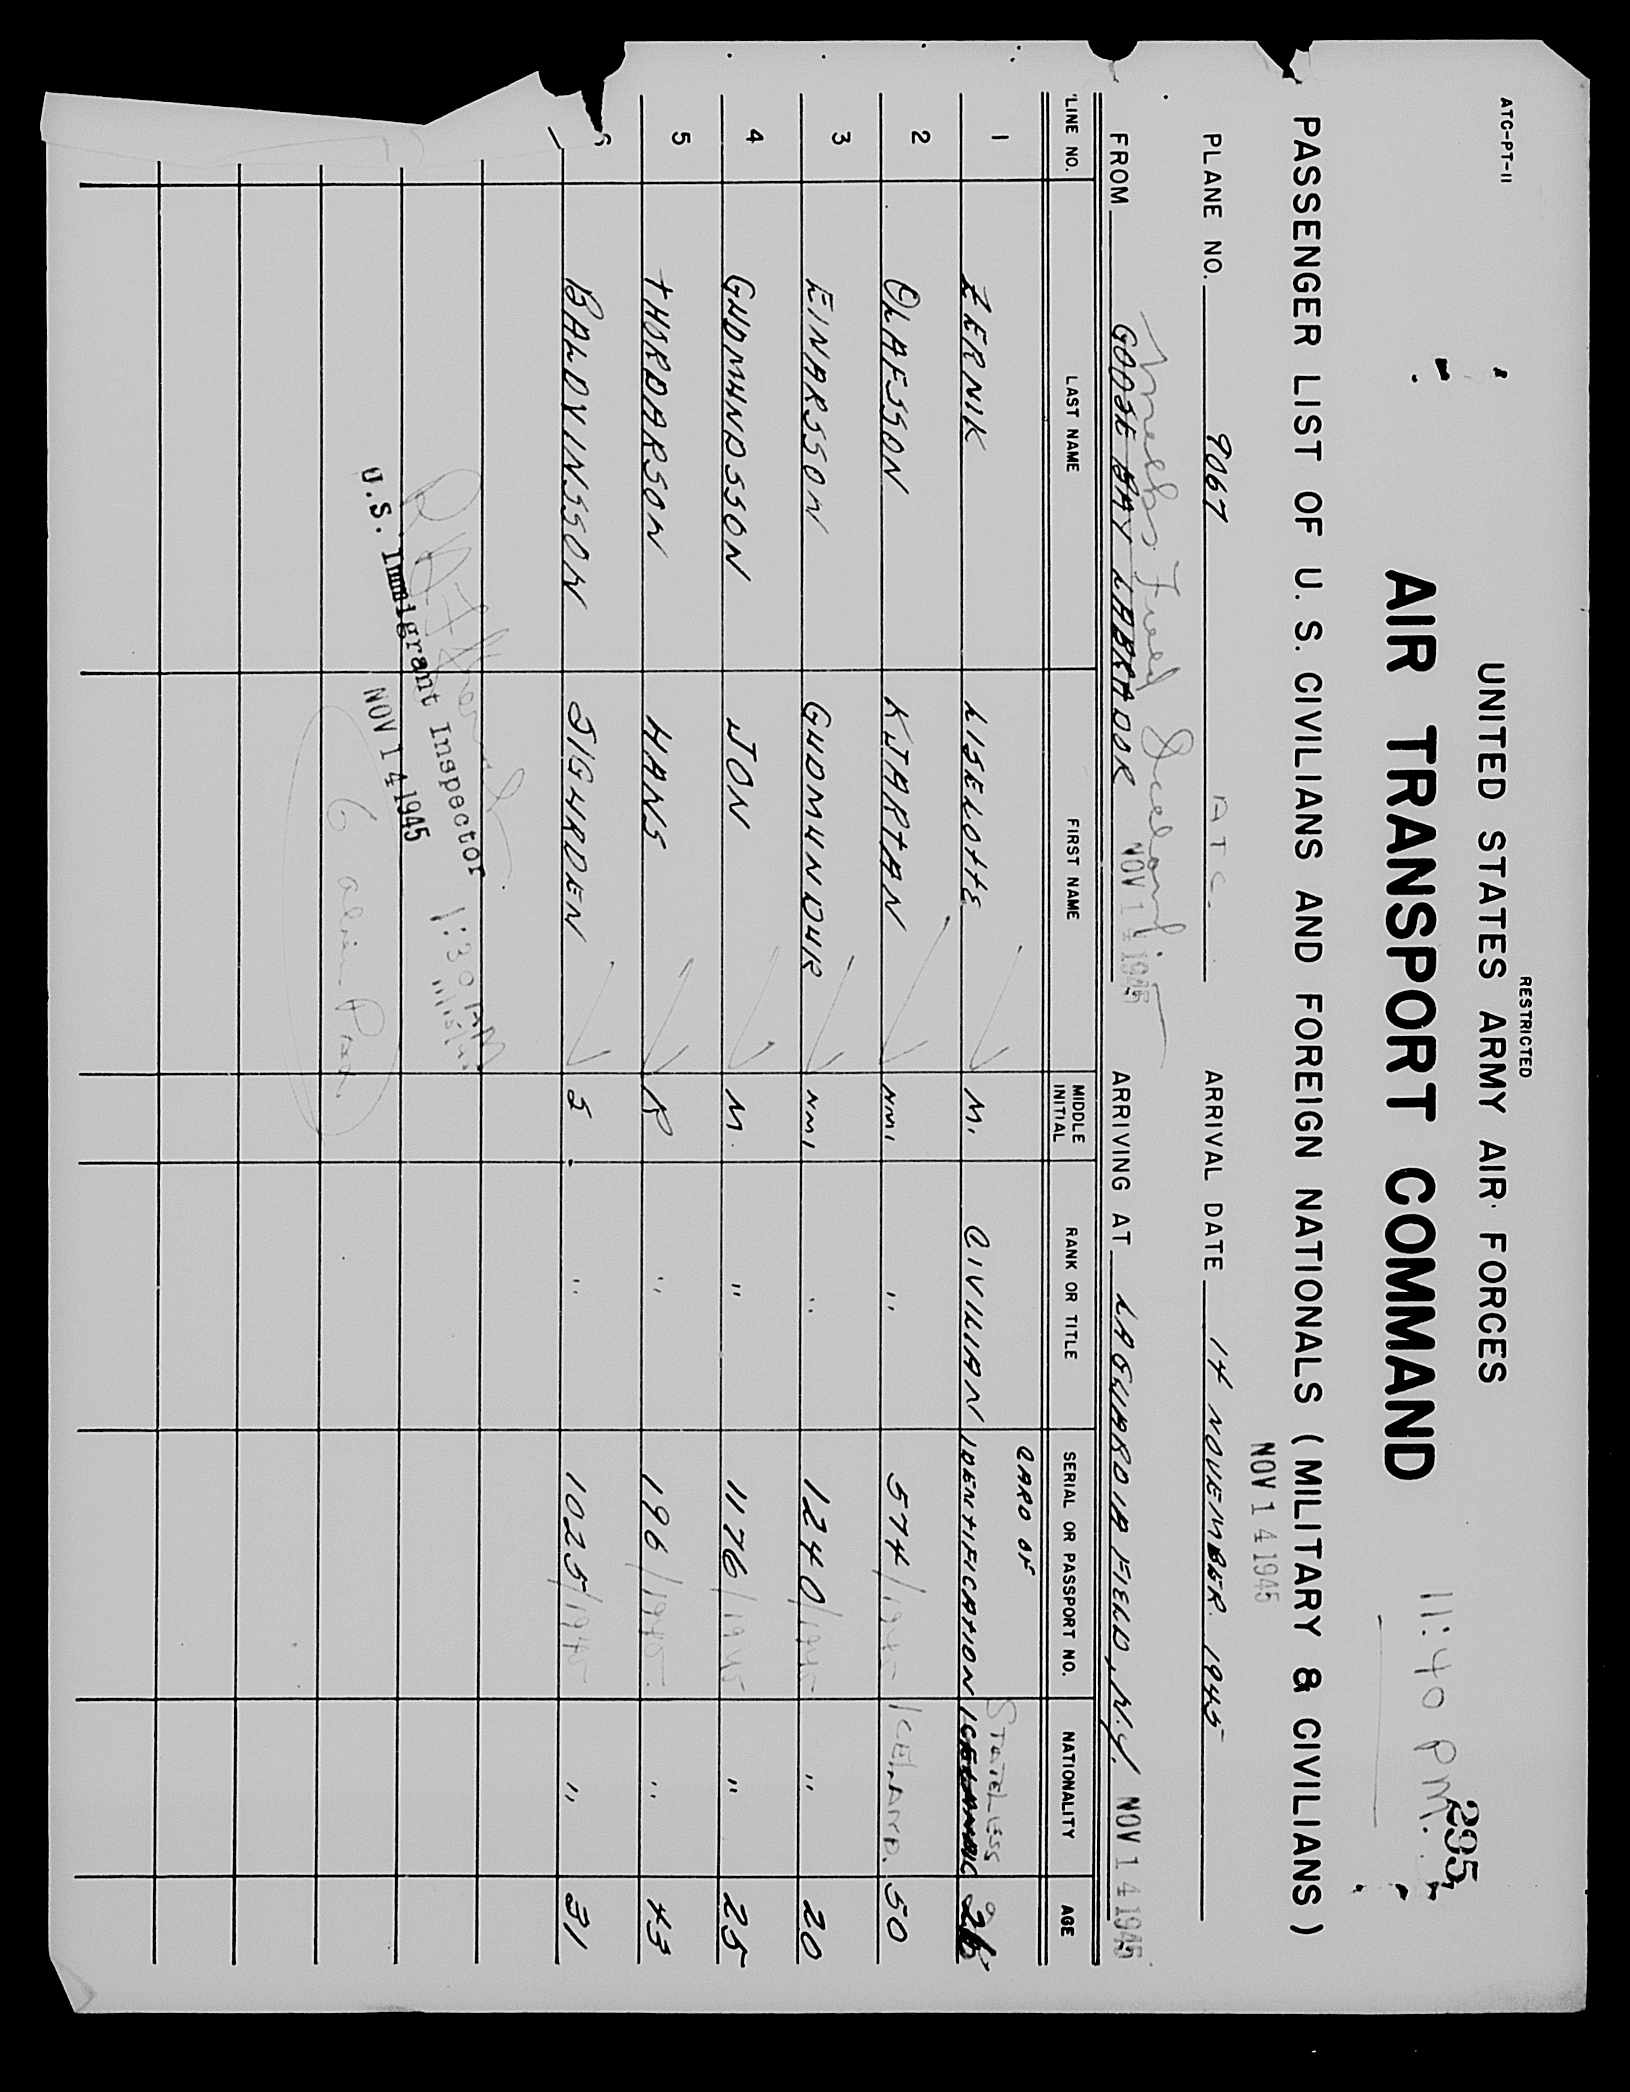 ATC-PT-11
RESTRICTED
UNITED STATES ARMY AIR FORCES
295
11:40 PM.
AIR TRANSPORT COMMAND
NOV 14 1945
PASSENGER LIST OF U. S. CIVILIANS AND FOREIGN NATIONALS (MILITARY & CIVILIANS)
PLANE NO. 9067 ATC. ARRIVAL DATE 14 NOVEMBER 1945
Meeks Field Iceland
FROM GOOSE BAY LABRADOR NOV 14 1945 ARRIVING AT LAGUARDIA FIELD, N.Y. NOV 14 1945
LINE NO. LAST NAME FIRST NAME MIDDLE INITIAL RANK OR TITLE SERIAL OR PASSPORT NO. NATIONALITY AGE
CARD OF STATELESS
1 ZERNIK LISELOTTE M. CIVILIAN IDENTIFICATION ICELANDIC
2 OLAFSSON KJARTAN NMI " 574/1945 ICELAND. 50
3 EINARSSON GUDMUNDUR NMI " 1240/1945 " 20
4 GUDMUNDSSON JON M. " 1176/1945 " 25
5 THORDARSON HANS R " 196/1945 " 43
6 BALDVINSSON SIGURDEN S. " 1025/1945 " 31
U.S. Immigrant Inspector
1:30 AM
NOV 14 1945
6 alien Pax.